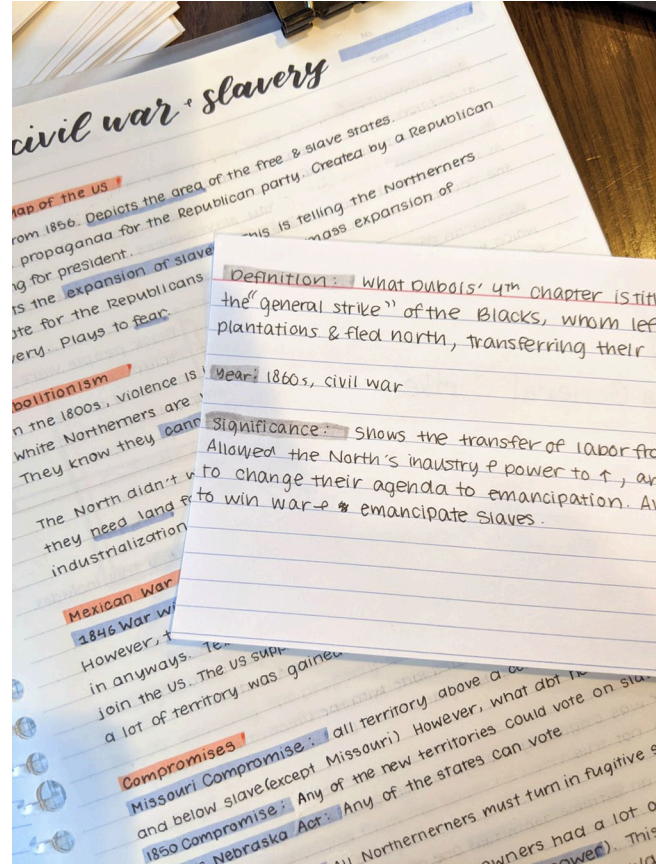 civil war + slavery
No.
Date
Map of the US
From 1856. Depicts the area of the free & slave states.
propaganda for the Republican party. Created by a Republican
g for president.
ts the expansion of slave This is telling the Northerners
te for the Republicans mass expansion of
very. Plays to fear.
bolitionism
n the 1800s, violence is
White Northerners are
They know they cann
The North didn't w
they need land f
industrialization
Mexican War
1846 War wi
However, t
in anyways. Te
join the US. The US supp
a lot of territory was gained
Compromises
Missouri Compromise: all territory above a c
and below slave (except Missouri) However, what abt n
1850 Compromise: Any of the new territories could vote on sla
Nebraska Act: Any of the states can vote
All Northernerners must turn in fugitive s
owners had a lot o
ower). This
Definition: What DuBois' 4th chapter is titl
the "general strike" of the Blacks, whom lef
plantations & fled north, transferring their
Year: 1860s, civil war
Significance: Shows the transfer of labor fro
Allowed the North's industry & power to ↑, an
to change their agenda to emancipation. A
to win war & emancipate slaves.